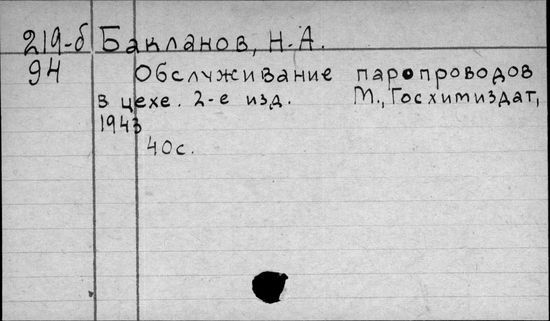 219-б Бакланов, Н.А.
94 Обслуживание паропроводов
в цехе. 2-е изд. М., Госхимиздат,
1943
40с.